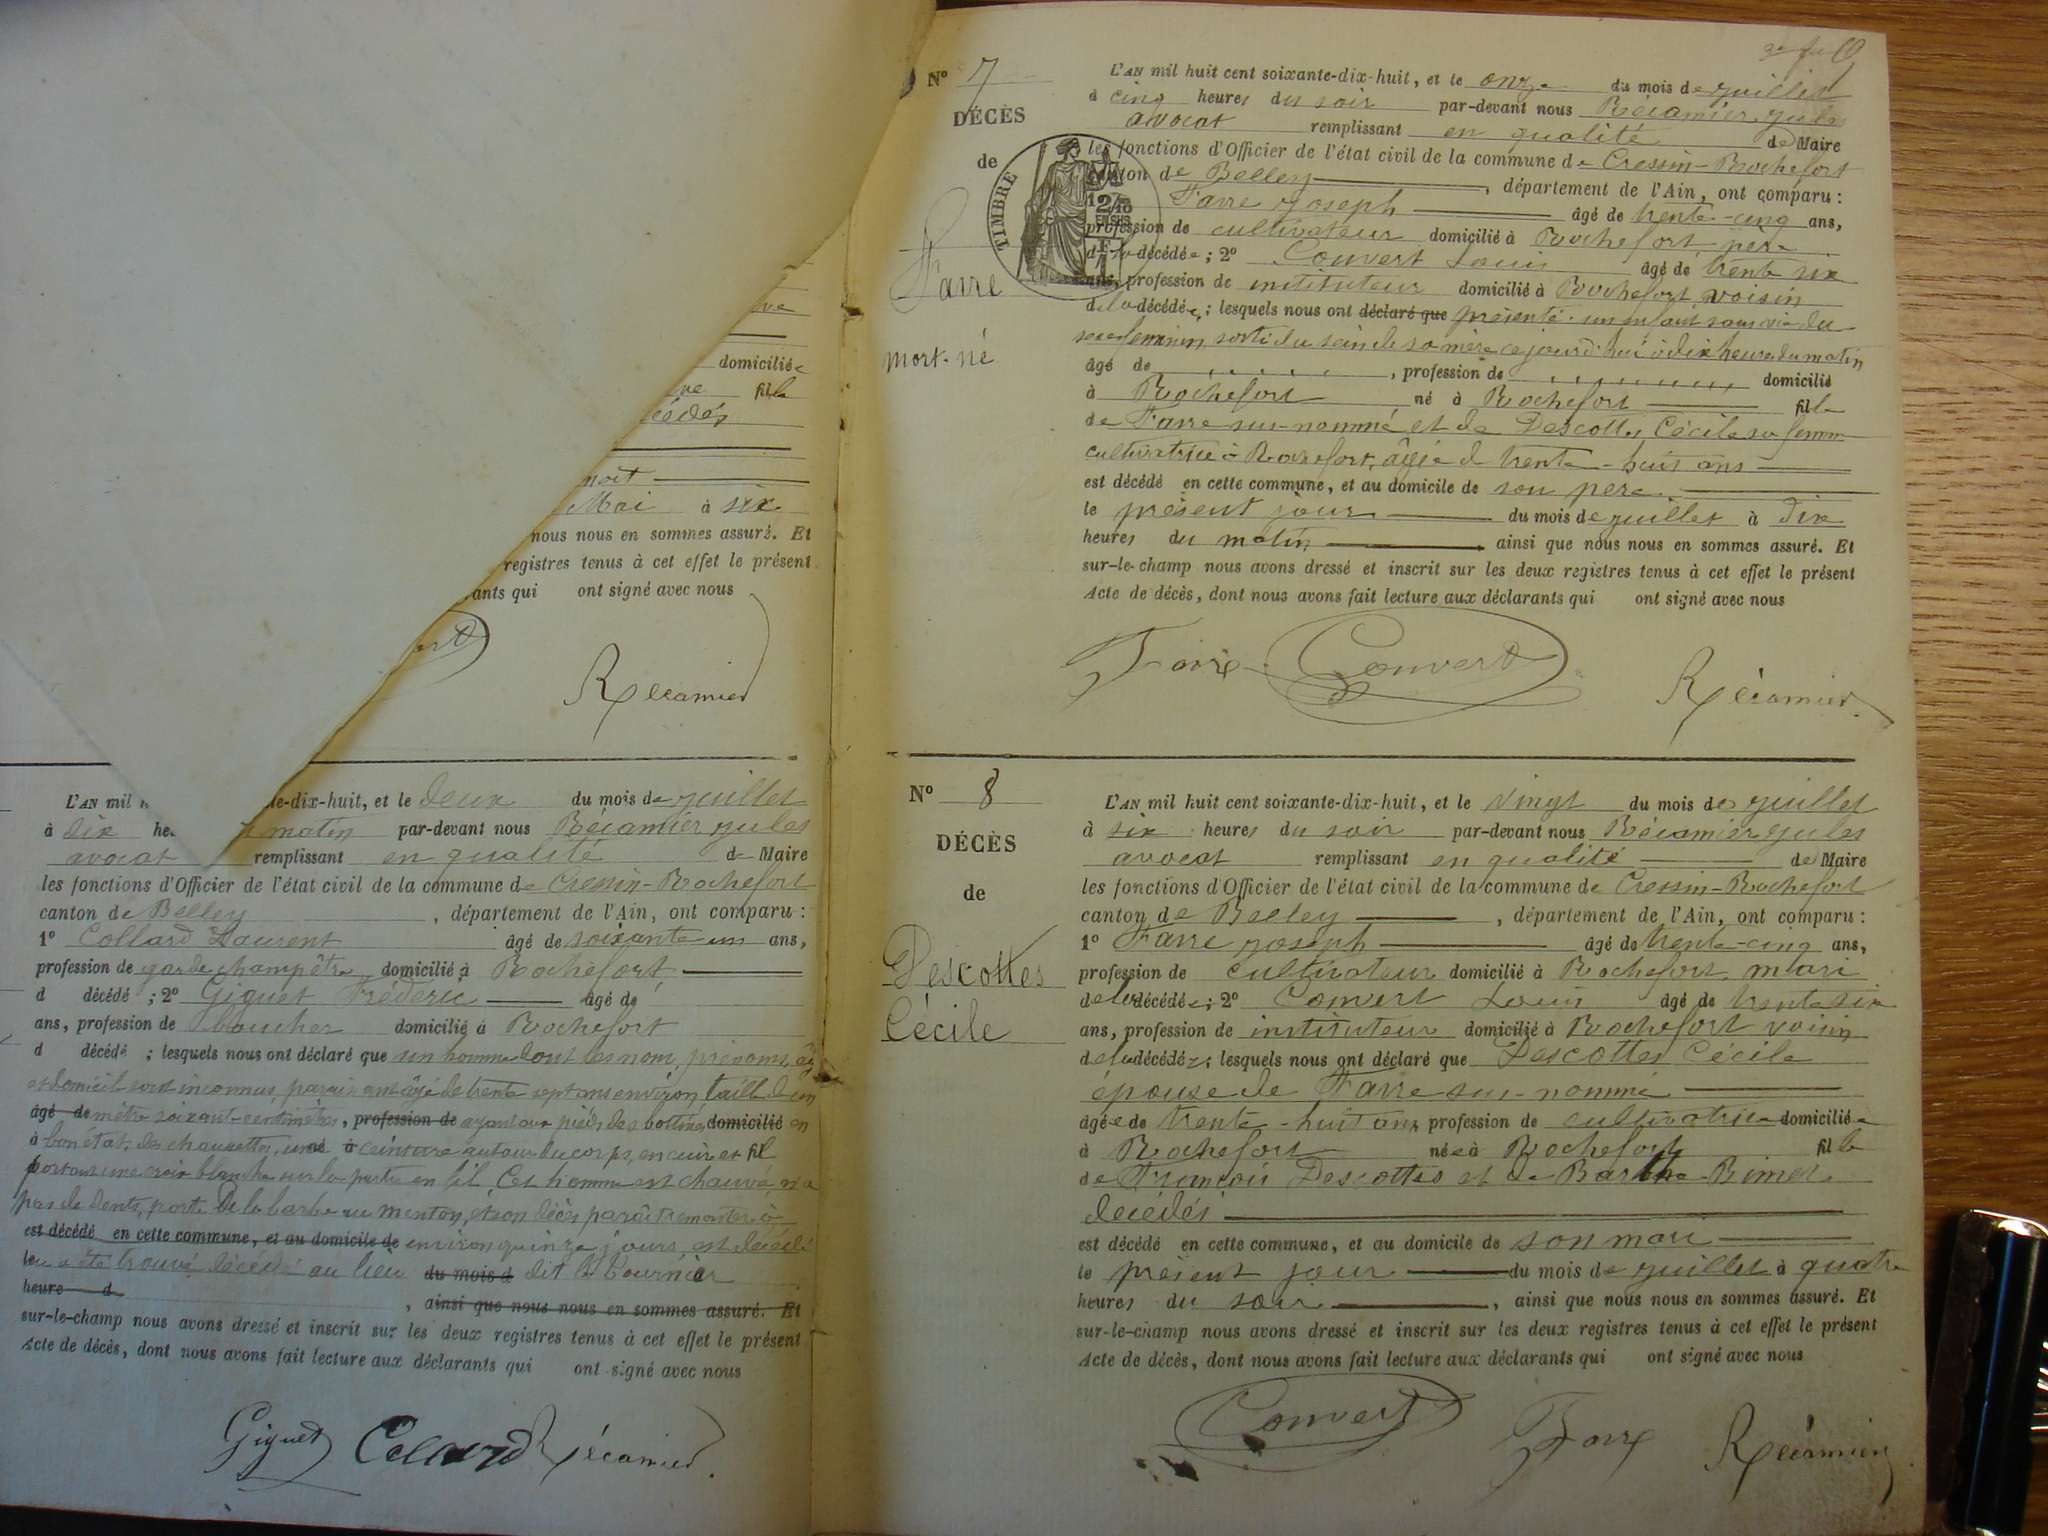 ve
domicilié
ve fille
décédés
noît
Mai à six
nous nous en sommes assuré. Et
registres tenus à cet effet le présent
ants qui ont signé avec nous
Récamier
L'AN mil h
te-dix-huit, et le deux du mois de juillet
à dix he matin par-devant nous Récamier Jules
avocat remplissant en qualité de Maire
les fonctions d'Officier de l'état civil de la commune de Cressin-Rochefort
canton de Belley, département de l'Ain, ont comparu :
1° Collard Laurent âgé de soixante un ans,
profession de garde champêtre domicilié à Rochefort
d décédé ; 2° Giguet Fréderic âgé de
ans, profession de boucher domicilié à Rochefort
d décédé ; lesquels nous ont déclaré que un homme dont les nom, prénoms, âge
et domicile sont inconnus, paraissant âgé de trente sept ans environ, taille de un
âgé de mètre soixante centimètres, profession de ayant aux pieds des bottines domicilié en
à bon état, des chaussettes, une à ceinture autour du corps, en cuir et fil
portant une croix blanche sur la partie en fil. Cet homme est chauve, n'a
pas de dents, porte de la barbe au menton, et son décès paraît remonter à
est décédé en cette commune, et au domicile de environ quinze jours, est décédé
le a été trouvé décédé au lieu du mois d dit le Tournier
heure d , ainsi que nous nous en sommes assuré. Et
sur-le-champ nous avons dressé et inscrit sur les deux registres tenus à cet effet le présent
Acte de décès, dont nous avons fait lecture aux déclarants qui ont signé avec nous
Giguet Colard Récamier
N° 7
DÉCÈS
de
Favre
mort-né
TIMBRE
L'AN mil huit cent soixante-dix-huit, et le onze du mois de juillet
à cinq heures du soir par-devant nous Récamier Jules
avocat remplissant en qualité de Maire
les fonctions d'Officier de l'état civil de la commune de Cressin-Rochefort
canton de Belley, département de l'Ain, ont comparu :
1° Favre Joseph âgé de trente-cinq ans,
profession de cultivateur domicilié à Rochefort père
de la décédée ; 2° Convert Louis âgé de trente six
ans, profession de instituteur domicilié à Rochefort voisin
de la décédée ; lesquels nous ont déclaré que présenté un enfant sans vie du
sexe féminin, sorti du sein de sa mère cejourd'hui à dix heures du matin
âgé de , profession de domicilié
à Rochefort né à Rochefort fille
de Favre sus-nommé et de Descottes Cécile sa femme
cultivatrice à Rochefort, âgée de trente-huit ans
est décédé en cette commune, et au domicile de son père
le présent jour du mois de juillet à dix
heures du matin ainsi que nous nous en sommes assuré. Et
sur-le-champ nous avons dressé et inscrit sur les deux registres tenus à cet effet le présent
Acte de décès, dont nous avons fait lecture aux déclarants qui ont signé avec nous
Favre Convert Récamier
N° 8
DÉCÈS
de
Descottes
Cécile
L'AN mil huit cent soixante-dix-huit, et le vingt du mois de juillet
à six heures du soir par-devant nous Récamier Jules
avocat remplissant en qualité de Maire
les fonctions d'Officier de l'état civil de la commune de Cressin-Rochefort
canton de Belley, département de l'Ain, ont comparu :
1° Favre Joseph âgé de trente-cinq ans,
profession de cultivateur domicilié à Rochefort mari
de la décédée ; 2° Convert Louis âgé de trente six
ans, profession de instituteur domicilié à Rochefort voisin
de la décédée ; lesquels nous ont déclaré que Descottes Cécile
épouse de Favre sus-nommé
âgée de trente-huit ans profession de cultivatrice domiciliée
à Rochefort née à Rochefort fille
de François Descottes et de Barthe Rimet
décédés
est décédé en cette commune, et au domicile de son mari
le présent jour du mois de juillet à quatre
heures du soir, ainsi que nous nous en sommes assuré. Et
sur-le-champ nous avons dressé et inscrit sur les deux registres tenus à cet effet le présent
Acte de décès, dont nous avons fait lecture aux déclarants qui ont signé avec nous
Convert Favre Récamier